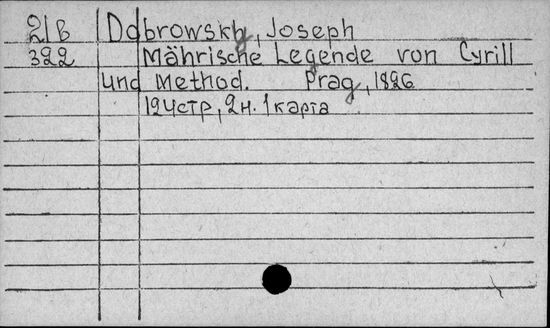 2/B Dobrowsky, Joseph
322 Mährische Legende von Cyrill
und Method. Prag, 1826
124стр, 2н. 1карта